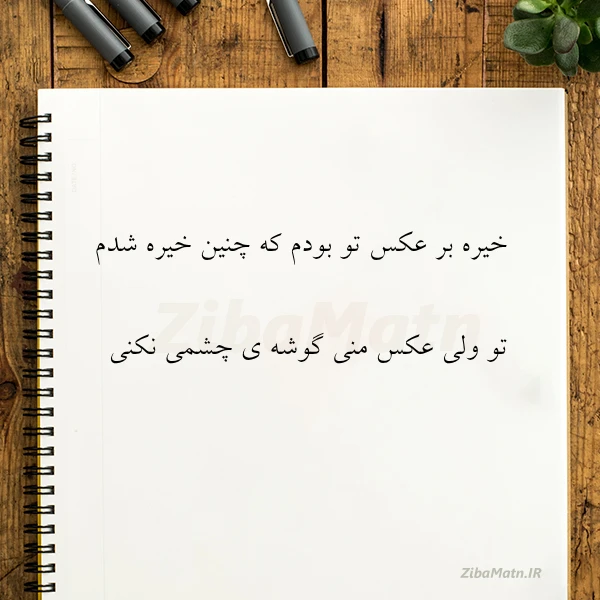 خیره بر عکس تو بودم که چنین خیره شدم
ZibaMatn
تو ولی عکس منی گوشه ی چشمی نکنی
ZibaMatn.IR